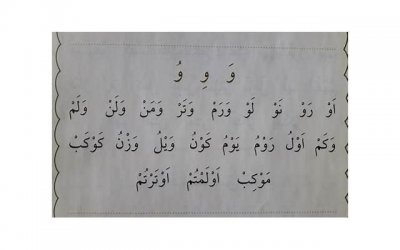 وَ وِ وُ
اَوْ رَوْ نَوْ لَوْ وَرَمْ وَتَرْ وَمَنْ وَلَنْ وَلَمْ
وَكَمْ اَوْلُ رَوْمُ يَوْمُ كَوْنُ وَيْلُ وَزْنُ كَوْكَبْ
مَوْكِبْ اَوْلَمْتُمْ اَوْتَرْتُمْ